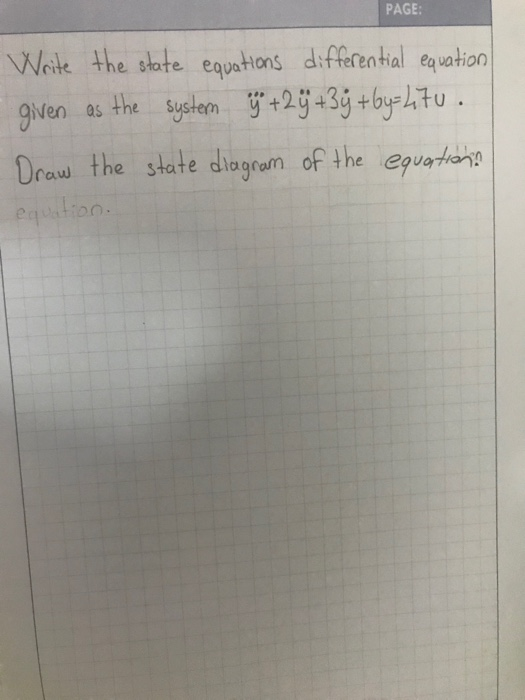 PAGE:
Write the state equations differential equation
given as the system y⃛+2ÿ+3ẏ+6y=47u.
Draw the state diagram of the equation.
equation.